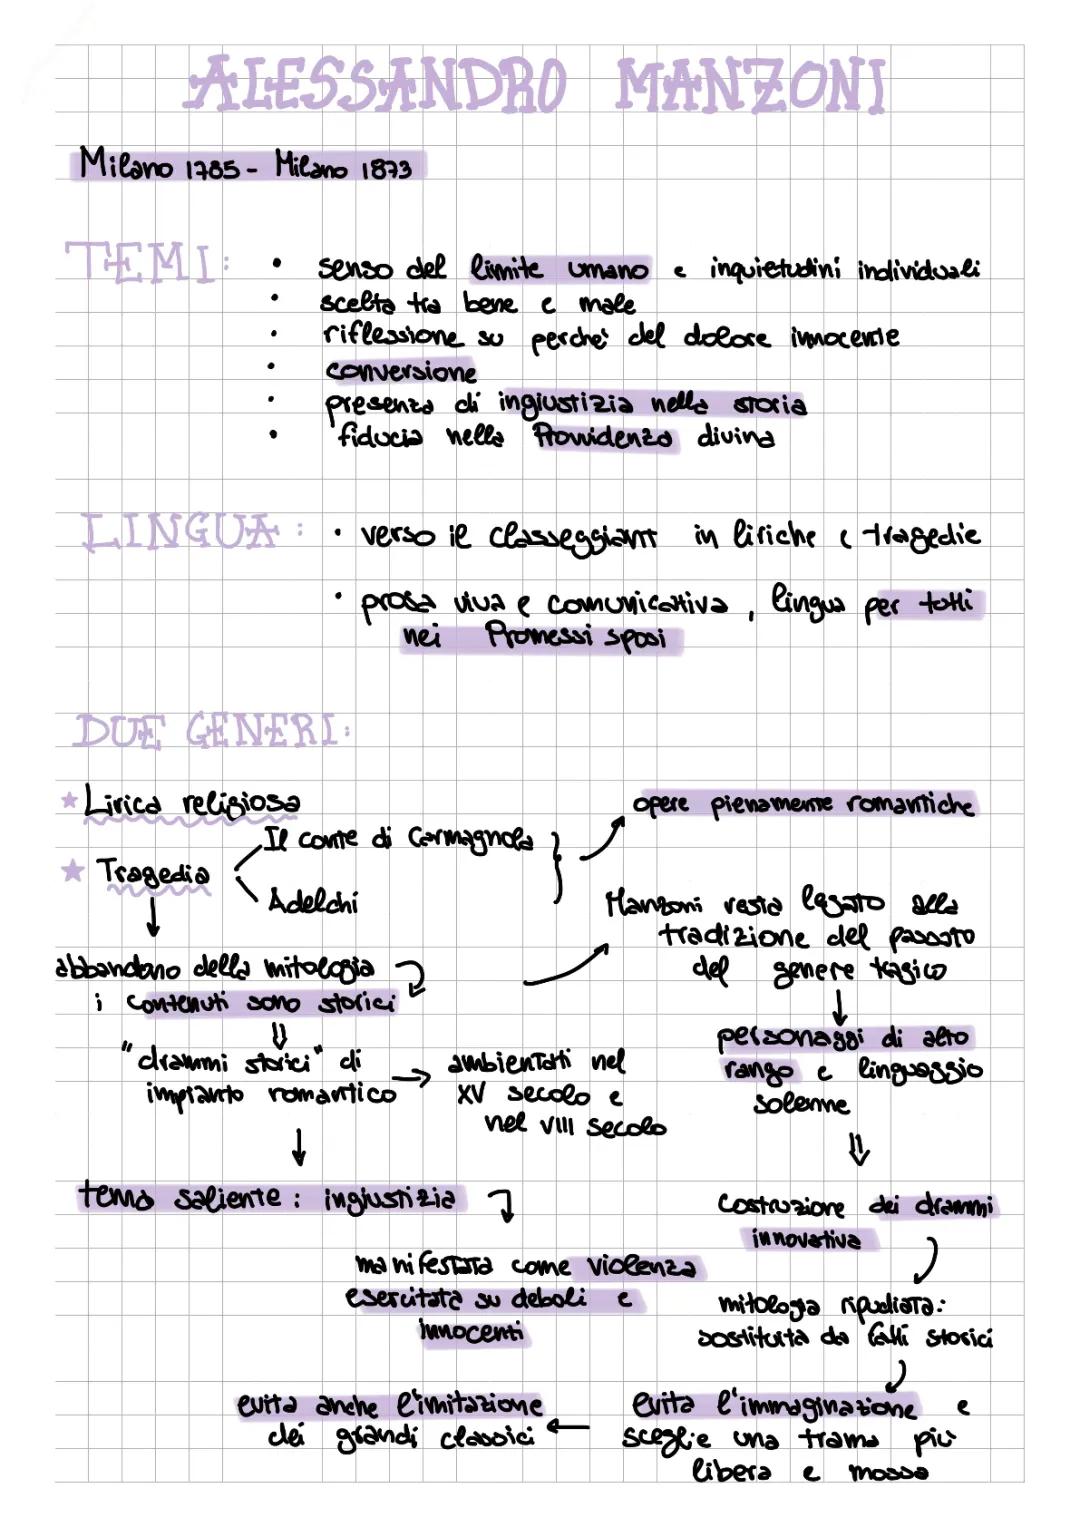 ALESSANDRO MANZONI
Milano 1785 - Milano 1873
TEMI:
• senso del limite umano e inquietudini individuali
• scelta tra bene e male
• riflessione su perché del dolore innocente
• conversione
• presenza di ingiustizia nella storia
• fiducia nella Provvidenza divina
LINGUA:
• verso il classeggiant in liriche e tragedie
• prosa viva e comunicativa, lingua per tutti
nei Promessi sposi
DUE GENERI:
★ Lirica religiosa
★ Tragedia
Il conte di Carmagnola
Adelchi
opere pienamente romantiche
abbandono della mitologia
i contenuti sono storici
"drammi storici" di
impianto romantico
ambientati nel
XV secolo e
nel VIII secolo
Manzoni resta legato alla
tradizione del passato
del genere tragico
personaggi di alto
rango e linguaggio
solenne
tema saliente: ingiustizia
manifestata come violenza
esercitata su deboli e
innocenti
costruzione dei drammi
innovativa
mitologia ripudiata:
sostituita da fatti storici
evita l'immaginazione e
sceglie una trama più
libera e mossa
evita anche l'imitazione
dei grandi classici